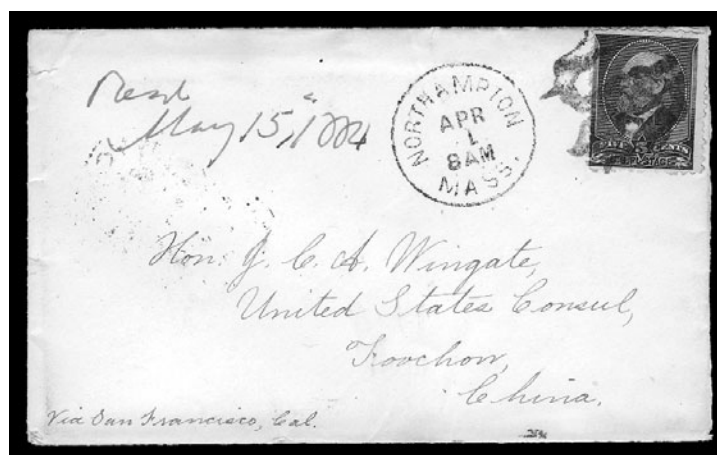 Recd
May 15, 1884
NORTHAMPTON
APR
1
8AM
MASS.
FIVE CENTS
U.S. POSTAGE
Hon. J. C. A. Wingate,
United States Consul,
Foochow,
China.
Via San Francisco, Cal.